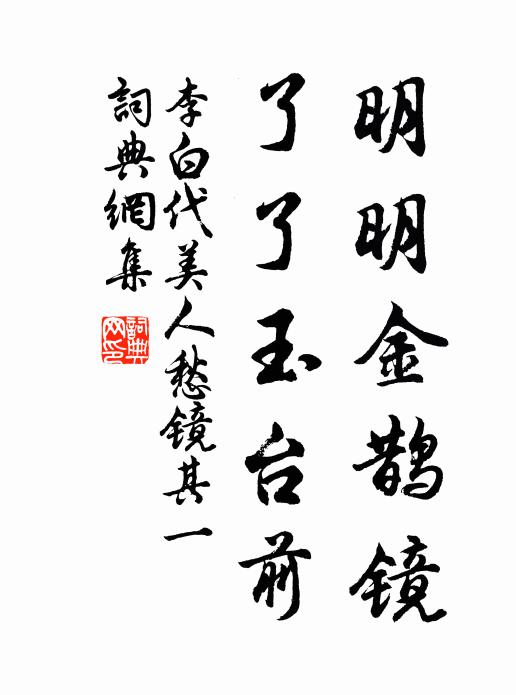 明明金鹊镜
了了玉台前
李白代美人愁镜其一
詞典網集
詞典网印